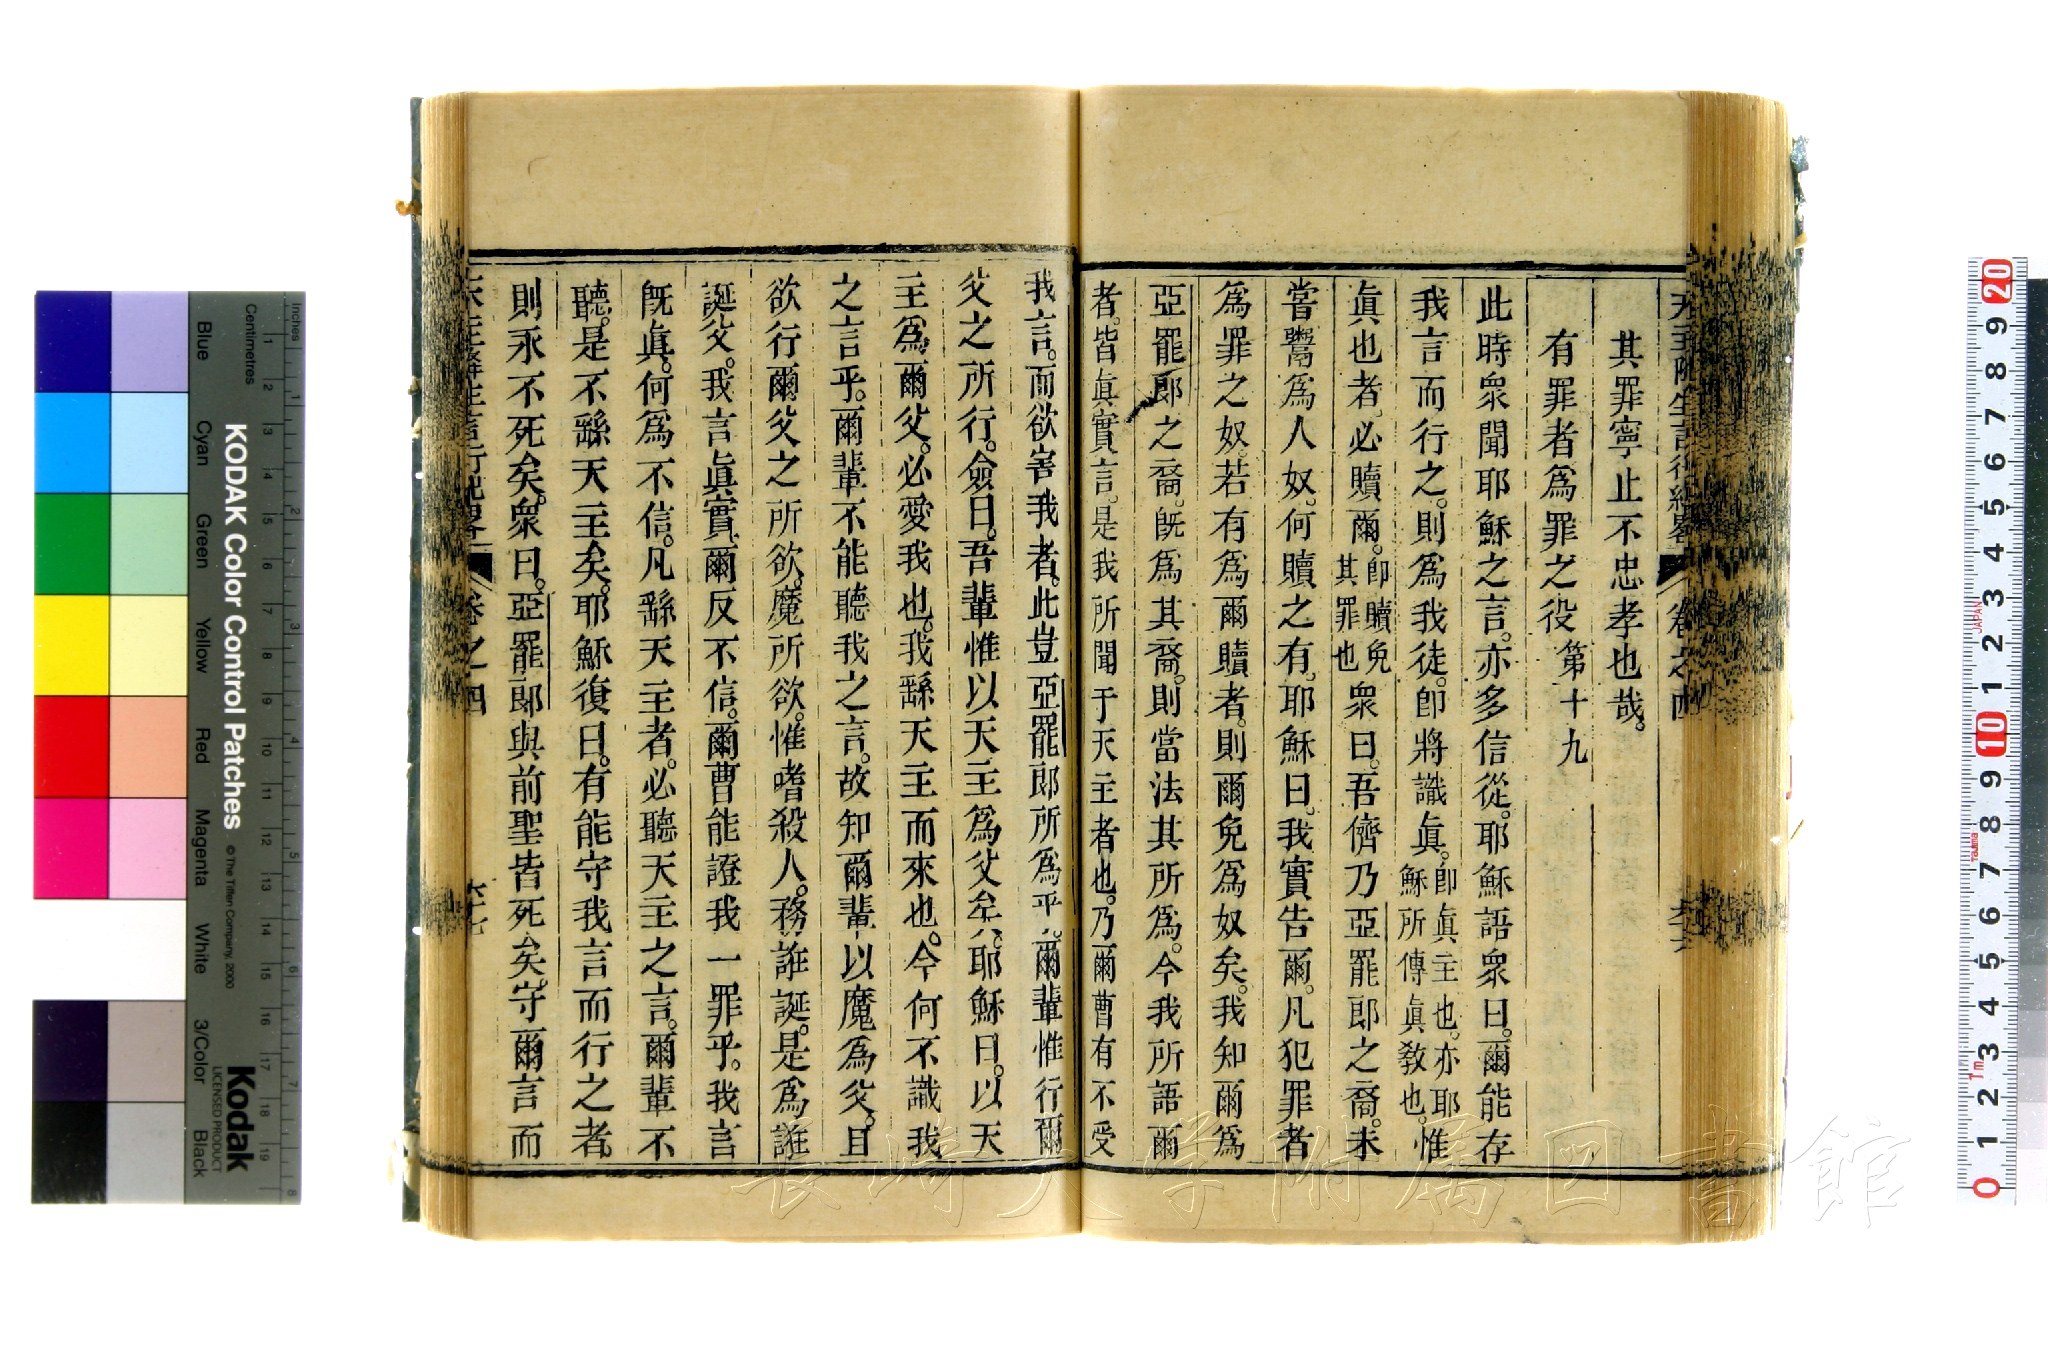 天主降生言行紀畧 卷之四
其罪寧止不忠孝也哉。
有罪者爲罪之役 第十九
此時衆聞耶穌之言。亦多信從。耶穌語衆曰。爾能存
我言而行之。則爲我徒。卽將識眞。卽眞主也。亦耶穌所傳眞敎也。惟
眞也者。必贖爾。卽贖免其罪也衆曰。吾儕乃亞罷郎之裔。未
嘗鬻爲人奴。何贖之有。耶穌曰。我實告爾。凡犯罪者
爲罪之奴。若有爲爾贖者。則爾免爲奴矣。我知爾爲
亞罷郎之裔。旣爲其裔。則當法其所爲。今我所語爾
者。皆眞實言。是我所聞于天主者也。乃爾曹有不受
我言。而欲害我者。此豈亞罷郎所爲乎。爾輩惟行爾
父之所行。僉曰。吾輩惟以天主爲父矣。耶穌曰。以天
主爲爾父。必愛我也。我繇天主而來也。今何不識我
之言乎。爾輩不能聽我之言。故知爾輩以魔爲父。且
欲行爾父之所欲。魔所欲。惟嗜殺人。務誑誕。是爲誑
誕父。我言眞實。爾反不信。爾曹能證我一罪乎。我言
旣眞。何爲不信。凡繇天主者。必聽天主之言。爾輩不
聽。是不繇天主矣。耶穌復曰。有能守我言而行之者。
則永不死矣。衆曰。亞罷郎與前聖皆死矣。守爾言而
天主降生言行紀畧 卷之四 六七
Inches
Centimetres
KODAK Color Control Patches
© The Tiffen Company, 2000
Kodak
LICENSED PRODUCT
Blue
Cyan
Green
Yellow
Red
Magenta
White
3/Color
Black
JAPAN
長崎大学附属図書館